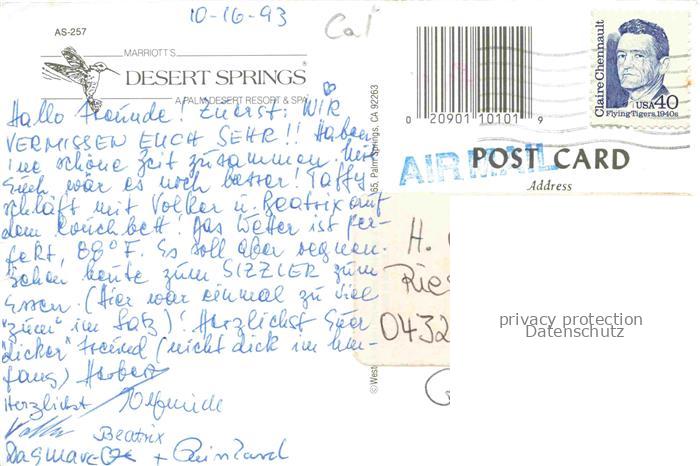 10-16-93
Cal
AS-257
MARRIOTT'S
DESERT SPRINGS®
A PALM DESERT RESORT & SPA
Hallo Freunde! Zuerst: WIR
VERMISSEN EUCH SEHR!! Haben
'ne schöne Zeit zusammen. Mit
Euch wär es noch besser! Taffy
schläft mit Volker u. Beatrix auf
dem Couchbett! Das Wetter ist per-
fekt, 88° F. Es soll aber regnen.
Schon heute zum SIZZLER zum
Essen. (Hier war einmal zu viel
"zum" im Satz)! Herzlichst Euer
"dicker" Freund (nicht dick im Um-
fang) Herbert
Herzlichst
Volker
Beatrix
Dagmar + 
65, Palm Springs, CA 92263
© West
0 20901 10101 9
Claire Chennault
USA 40
Flying Tigers, 1940s
AIR MAIL
POST CARD
Address
H.
Ries
0432
privacy protection
Datenschutz